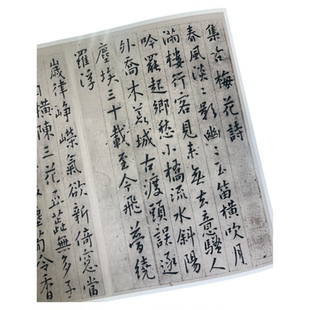 集古梅花詩
春風淡〻影幽〻玉笛橫吹月
滿樓行客見來無去意騷人
吟罷起鄉愁小橋流水斜陽
外喬木荒城古渡頭誤逐
塵埃三十載至今飛夢繞
羅浮
歲律崢嶸氣欲新倚窓當
橫陳三花五蕊無多子
令香